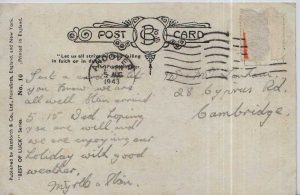 POST CARD
"Let us all strive
in faith or in
5 AUG
1943
Just a
you know we are
all well. Stan around
5.15 Wed hoping
you are well and
we are enjoying our
holiday with good
weather.
28 Cyprus Rd.
Cambridge.
Published by Bamforth & Co., Ltd., Holmfirth, England, and New York.
"BEST OF LUCK" Series. No. 10 (Printed in England).